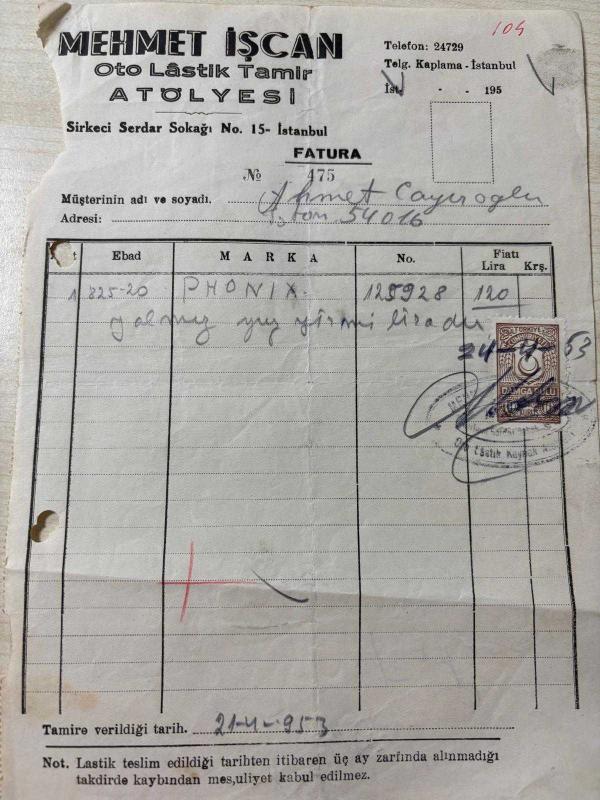 104
MEHMET İŞCAN
Oto Lâstik Tamir
ATÖLYESİ
Sirkeci Serdar Sokağı No. 15- İstanbul
Telefon: 24729
Telg. Kaplama - İstanbul
İst. - - 195
FATURA
No 475
Müşterinin adı ve soyadı. Ahmet Cayıroglu
Adresi: 54016
Ebad MARKA No. Fiatı
Lira Krş.
1 825-20 PHONIX. 125928 120
yalnız yuz yirmi liradır
24-4-53
Tamire verildiği tarih. 21-4-953
Not. Lastik teslim edildiği tarihten itibaren üç ay zarfında alınmadığı
takdirde kaybından mes,uliyet kabul edilmez.